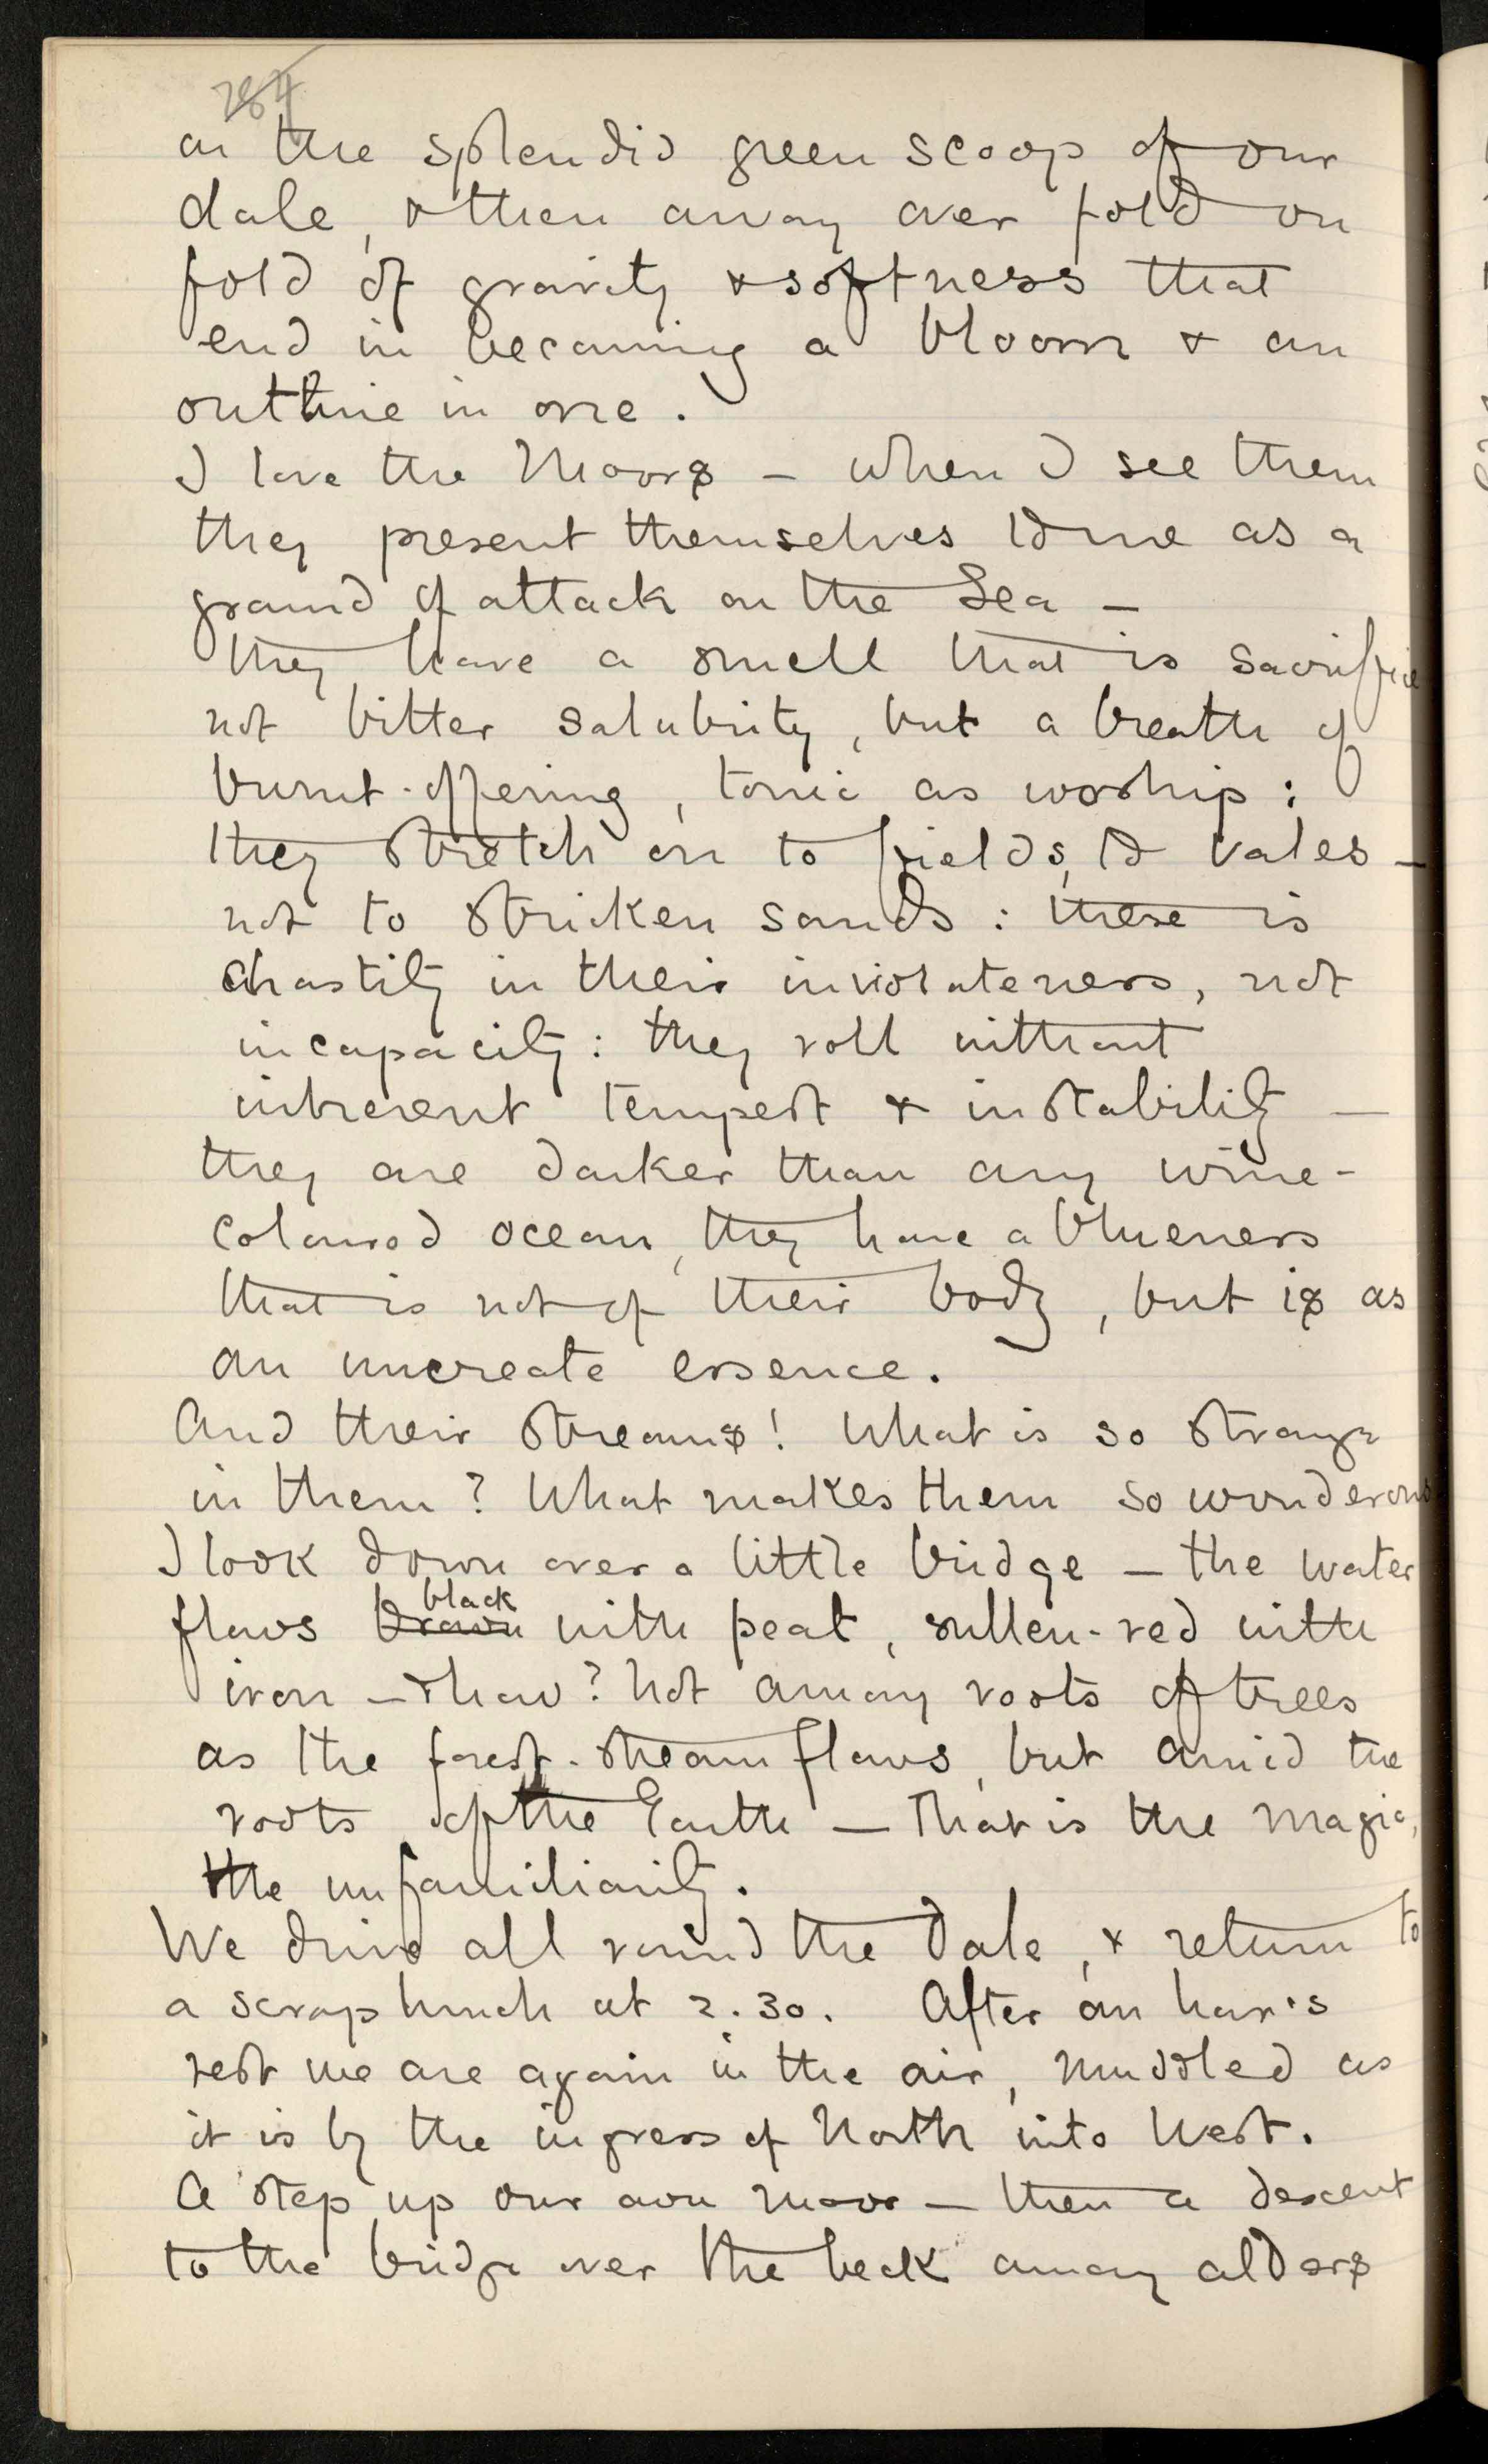 284
on the splendid green scoop of our
dale, & then away over fold on
fold of gravity & softness that
end in becoming a bloom & an
outline in one.
I love the Moors – when I see them
they present themselves to me as a
ground of attack on the Sea –
they have a smell that is sacrifice
not bitter salubrity, but a breath of
burnt-offering, tonic as worship:
they stretch on to fields, to vales –
not to stricken sands: there is
chastity in their inviolateness, not
incapacity: they roll without
inherent tempest & instability –
they are darker than any wine-
coloured ocean, they have a blueness
that is not of their body, but is as
an uncreate essence.
And their streams! What is so strange
in them? What makes them so wonderous
I look down over a little bridge – the water
black
flows brown with peat, sullen-red with
iron – & how? Not among roots of trees
as the forest-stream flows, but amid the
roots of the Earth – That is the magic,
the unfamiliarity.
We drive all round the Dale, & return to
a scrap lunch at 2.30. After an hour's
rest we are again in the air, muddled as
it is by the ingress of North into West.
A step up our own moor – then a descent
to the bridge over the beck among alders